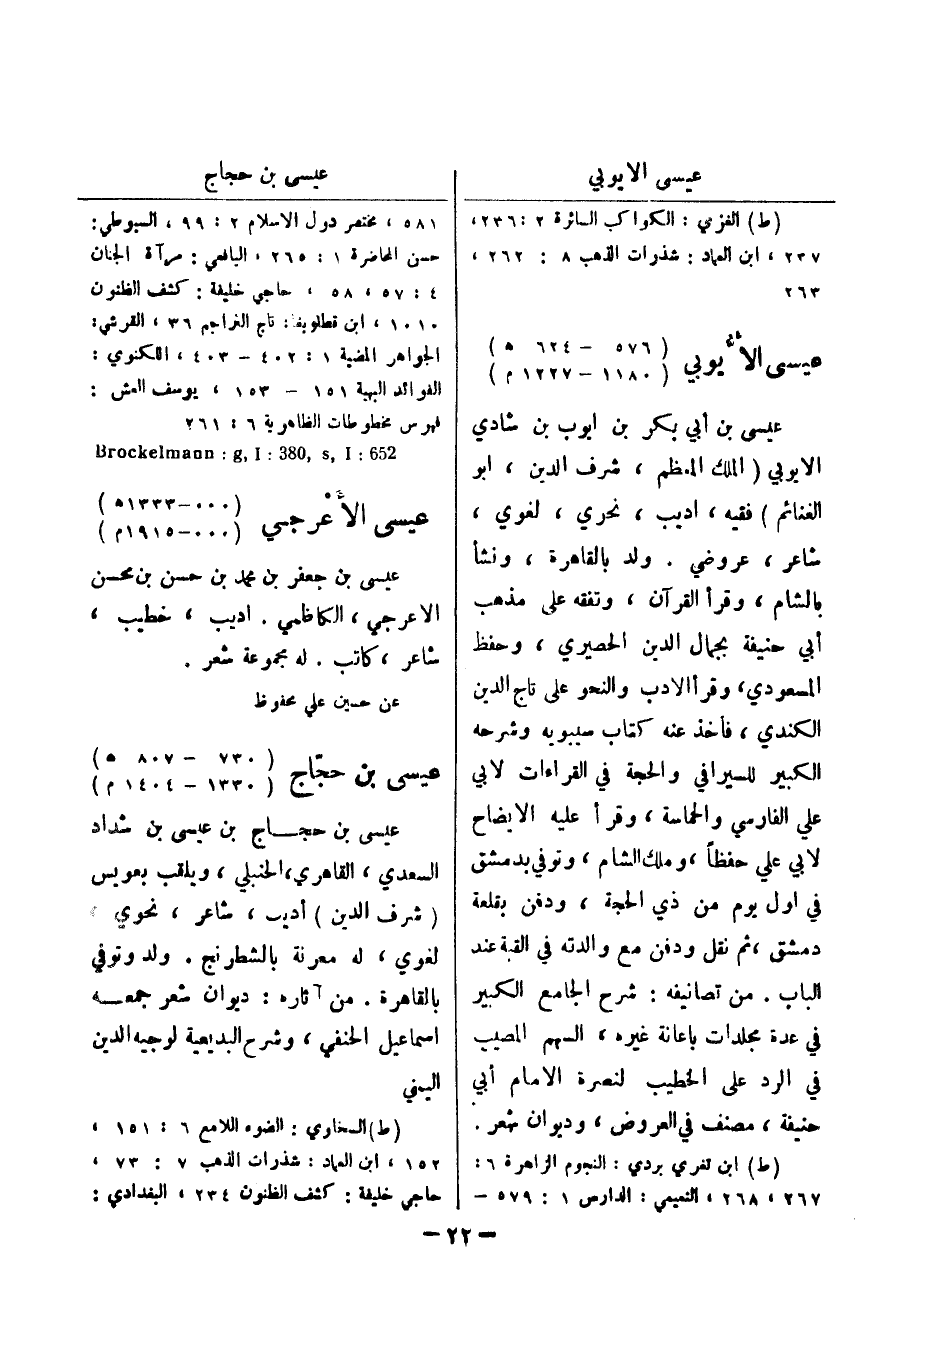 عيسى الايوبي
(ط) الغزي : الكواكب السائرة ٢ : ٢٣٦،
٢٣٧ ، ابن العماد : شذرات الذهب ٨ : ٢٦٢ ،
٢٦٣
عيسى الأيوبي (٥٧٦ – ٦٢٤ ه)
(١١٨٠ – ١٢٢٧ م)
عيسى بن أبي بكر بن ايوب بن شادي
الايوبي ( الملك المعظم ، شرف الدين ، ابو
الغنائم ) فقيه ، اديب ، نحوي ، لغوي ،
شاعر ، عروضي . ولد بالقاهرة ، ونشأ
بالشام ، وقرأ القرآن ، وتفقه على مذهب
أبي حنيفة بجمال الدين الحصيري ، وحفظ
المسعودي، وقرأ الادب والنحو على تاج الدين
الكندي ، فأخذ عنه كتاب سيبويه وشرحه
الكبير للسيرافي والحجة في القراءات لابي
علي الفارسي والحماسة ، وقرأ عليه الايضاح
لابي علي حفظاً ، وملك الشام ، وتوفي بدمشق
في اول يوم من ذي الحجة ، ودفن بقلعة
دمشق ،ثم نقل ودفن مع والدته في القبة عند
الباب . من تصانيفه : شرح الجامع الكبير
في عدة مجلدات باعانة غيره ، السهم المصيب
في الرد على الخطيب لنصرة الامام أبي
حنيفة ، مصنف في العروض ، وديوان شعر .
(ط) ابن تغري بردي : النجوم الزاهرة ٦ :
٢٦٧ ، ٢٦٨ ، النعيمي : الدارس ١ : ٥٧٩ –
عيسى بن حجاج
٥٨١ ، مختصر دول الاسلام ٢ : ٩٩ ، السيوطي:
حسن المحاضرة ١ : ٢٦٥ ، اليافعي : مرآة الجنان
٤ : ٥٧ ، ٥٨ ، حاجي خليفة : كشف الظنون
١٠١٠ ، ابن قطلوبغا: تاج التراجم ٣٦ ، القرشي:
الجواهر المضية ١ : ٤٠٢ – ٤٠٣ ، اللكنوي :
الفوائد البهية ١٥١ – ١٥٣ ، يوسف العش :
فهرس مخطوطات الظاهرية ٦ : ٢٦١
Brockelmann : g, I : 380, s, I : 652
عيسى الأعرجي (٠٠٠–١٣٣٣ه)
(٠٠٠–١٩١٥م)
عيسى بن جعفر بن محمد بن حسن بن محسن
الاعرجي ، الكاظمي . اديب ، خطيب ،
شاعر ، كاتب . له مجموعة شعر .
عن حسين علي محفوظ
عيسى بن حجّاج (٧٣٠ – ٨٠٧ ه)
(١٣٣٠ – ١٤٠٤ م)
عيسى بن حجـاج بن عيسى بن شداد
السعدي ، القاهري،الحنبلي ، ويلقب بعويس
( شرف الدين ) أديب ، شاعر ، نحوي ،
لغوي ، له معرفة بالشطرنج . ولد وتوفي
بالقاهرة . من آثاره : ديوان شعر جمعـه
اسماعيل الحنفي ، وشرح البديعية لوجيه الدين
اليمني
(ط) السخاوي : الضوء اللامع ٦ : ١٥١ ،
١٥٢ ، ابن العماد : شذرات الذهب ٧ : ٧٣ ،
حاجي خليفة : كشف الظنون ٢٣٤ ، البغدادي :
– ٢٢ –